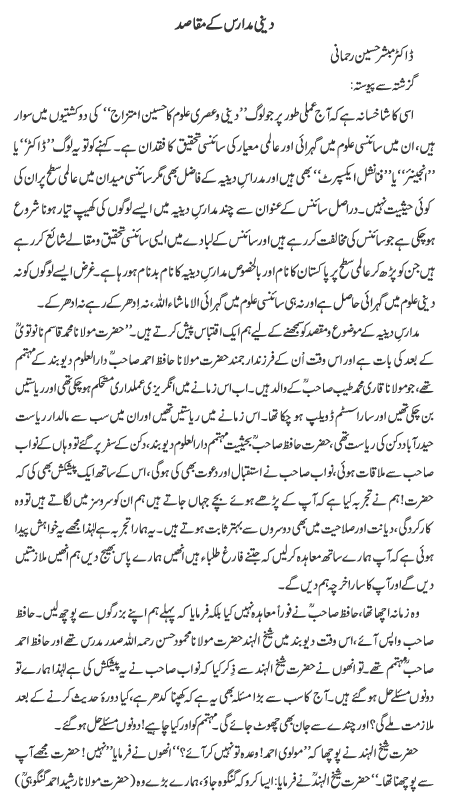 دینی مدارس کے مقاصد
ڈاکٹر مبشر حسین رحمانی
گزشتہ سے پیوستہ:
اسی کا شاخسانہ ہے کہ آج عملی طور پر جو لوگ ’’دینی و عصری علوم کا حسین امتزاج‘‘ کی دو کشتیوں میں سوار
ہیں، ان میں سائنسی علوم میں گہرائی اور عالمی معیار کی سائنسی تحقیق کا فقدان ہے۔ کہنے کو تو یہ لوگ ’’ڈاکٹر‘‘ یا
’’انجینئر‘‘ یا ’’فنانشل ایکسپرٹ‘‘ بھی ہیں اور مدارسِ دینیہ کے فاضل بھی مگر سائنسی میدان میں عالمی سطح پر ان کی
کوئی حیثیت نہیں۔ دراصل سائنس کے عنوان سے چند مدارسِ دینیہ میں ایسے لوگوں کی کھیپ تیار ہونا شروع
ہوچکی ہے جو سائنس کی مخالفت کر رہے ہیں اور سائنس کے لبادے میں ایسی سائنسی تحقیق و مقالے شائع کر رہے
ہیں جن کو پڑھ کر عالمی سطح پر پاکستان کا نام اور بالخصوص مدارسِ دینیہ کا نام بدنام ہو رہا ہے۔ غرض ایسے لوگوں کو نہ
دینی علوم میں گہرائی حاصل ہے اور نہ ہی سائنسی علوم میں گہرائی الا ماشاء اللہ، نہ اِدھر کے رہے نہ اُدھر کے۔
مدارسِ دینیہ کے موضوع و مقصد کو سمجھنے کے لیے ہم ایک اقتباس پیش کرتے ہیں۔ ’’حضرت مولانا محمد قاسم نانوتویؒ
کے بعد کی بات ہے اور اس وقت اُن کے فرزند ارجمند حضرت مولانا حافظ احمد صاحبؒ دارالعلوم دیوبند کے مہتمم
تھے، جو مولانا قاری محمد طیب صاحبؒ کے والد ہیں۔ اب اس زمانے میں انگریزی عملداری مستحکم ہوچکی تھی اور ریاستیں
بن چکی تھیں اور سارا سسٹم ڈویلپ ہو چکا تھا۔ اس زمانے میں ریاستیں تھیں اور ان میں سب سے مالدار ریاست
حیدرآباد دکن کی ریاست تھی، حضرت حافظ صاحبؒ بحیثیت مہتمم دارالعلوم دیوبند، دکن کے سفر پر گئے تو وہاں کے نواب
صاحب سے ملاقات ہوئی، نواب صاحب نے استقبال اور دعوت بھی کی ہوگی، اس کے ساتھ ایک پیشکش بھی کی کہ
حضرت! ہم نے تجربہ کیا ہے کہ آپ کے پڑھے ہوئے بچے جہاں جاتے ہیں ہم ان کو سروسز میں لگاتے ہیں تو وہ
کارکردگی، دیانت اور صلاحیت میں بھی دوسروں سے بہتر ثابت ہوتے ہیں۔ یہ ہمارا تجربہ ہے لہٰذا مجھے یہ خواہش پیدا
ہوئی ہے کہ آپ ہمارے ساتھ معاہدہ کرلیں کہ جتنے فارغ طلباء ہیں انھیں ہمارے پاس بھیج دیں ہم انھیں ملازمتیں
دیں گے اور آپ کا سارا خرچہ ہم دیں گے۔
وہ زمانہ اچھا تھا، حافظ صاحبؒ نے فوراً معاہدہ نہیں کیا بلکہ فرمایا کہ پہلے ہم اپنے بزرگوں سے پوچھ لیں۔ حافظ
صاحب واپس آئے، اس وقت دیوبند میں شیخ الہند حضرت مولانا محمود حسن رحمہ اللہ صدر مدرس تھے اور حافظ احمد
صاحبؒ مہتمم تھے۔ تو انھوں نے حضرت شیخ الہند سے ذکر کیا کہ نواب صاحب نے یہ پیشکش کی ہے لہٰذا ہمارے تو
دونوں مسئلے حل ہو گئے ہیں۔ آج کا سب سے بڑا مسئلہ بھی یہ ہے کہ کھپنا کدھر ہے، کیا دورۂ حدیث کرنے کے بعد
ملازمت ملے گی؟ اور چندے سے جان بھی چھوٹ جائے گی۔ مہتمم کو اور کیا چاہیے! دونوں مسئلے حل ہوگئے۔
حضرت شیخ الہند نے پوچھا کہ ’’مولوی احمد! وعدہ تو نہیں کر آئے؟‘‘ انھوں نے فرمایا ’’نہیں! حضرت مجھے آپ
سے پوچھنا تھا۔‘‘ حضرت شیخ الہندؒ نے فرمایا: ایسا کرو کہ گنگوہ جاؤ، ہمارے بڑے وہ (حضرت مولانا رشید احمد گنگوہیؒ)